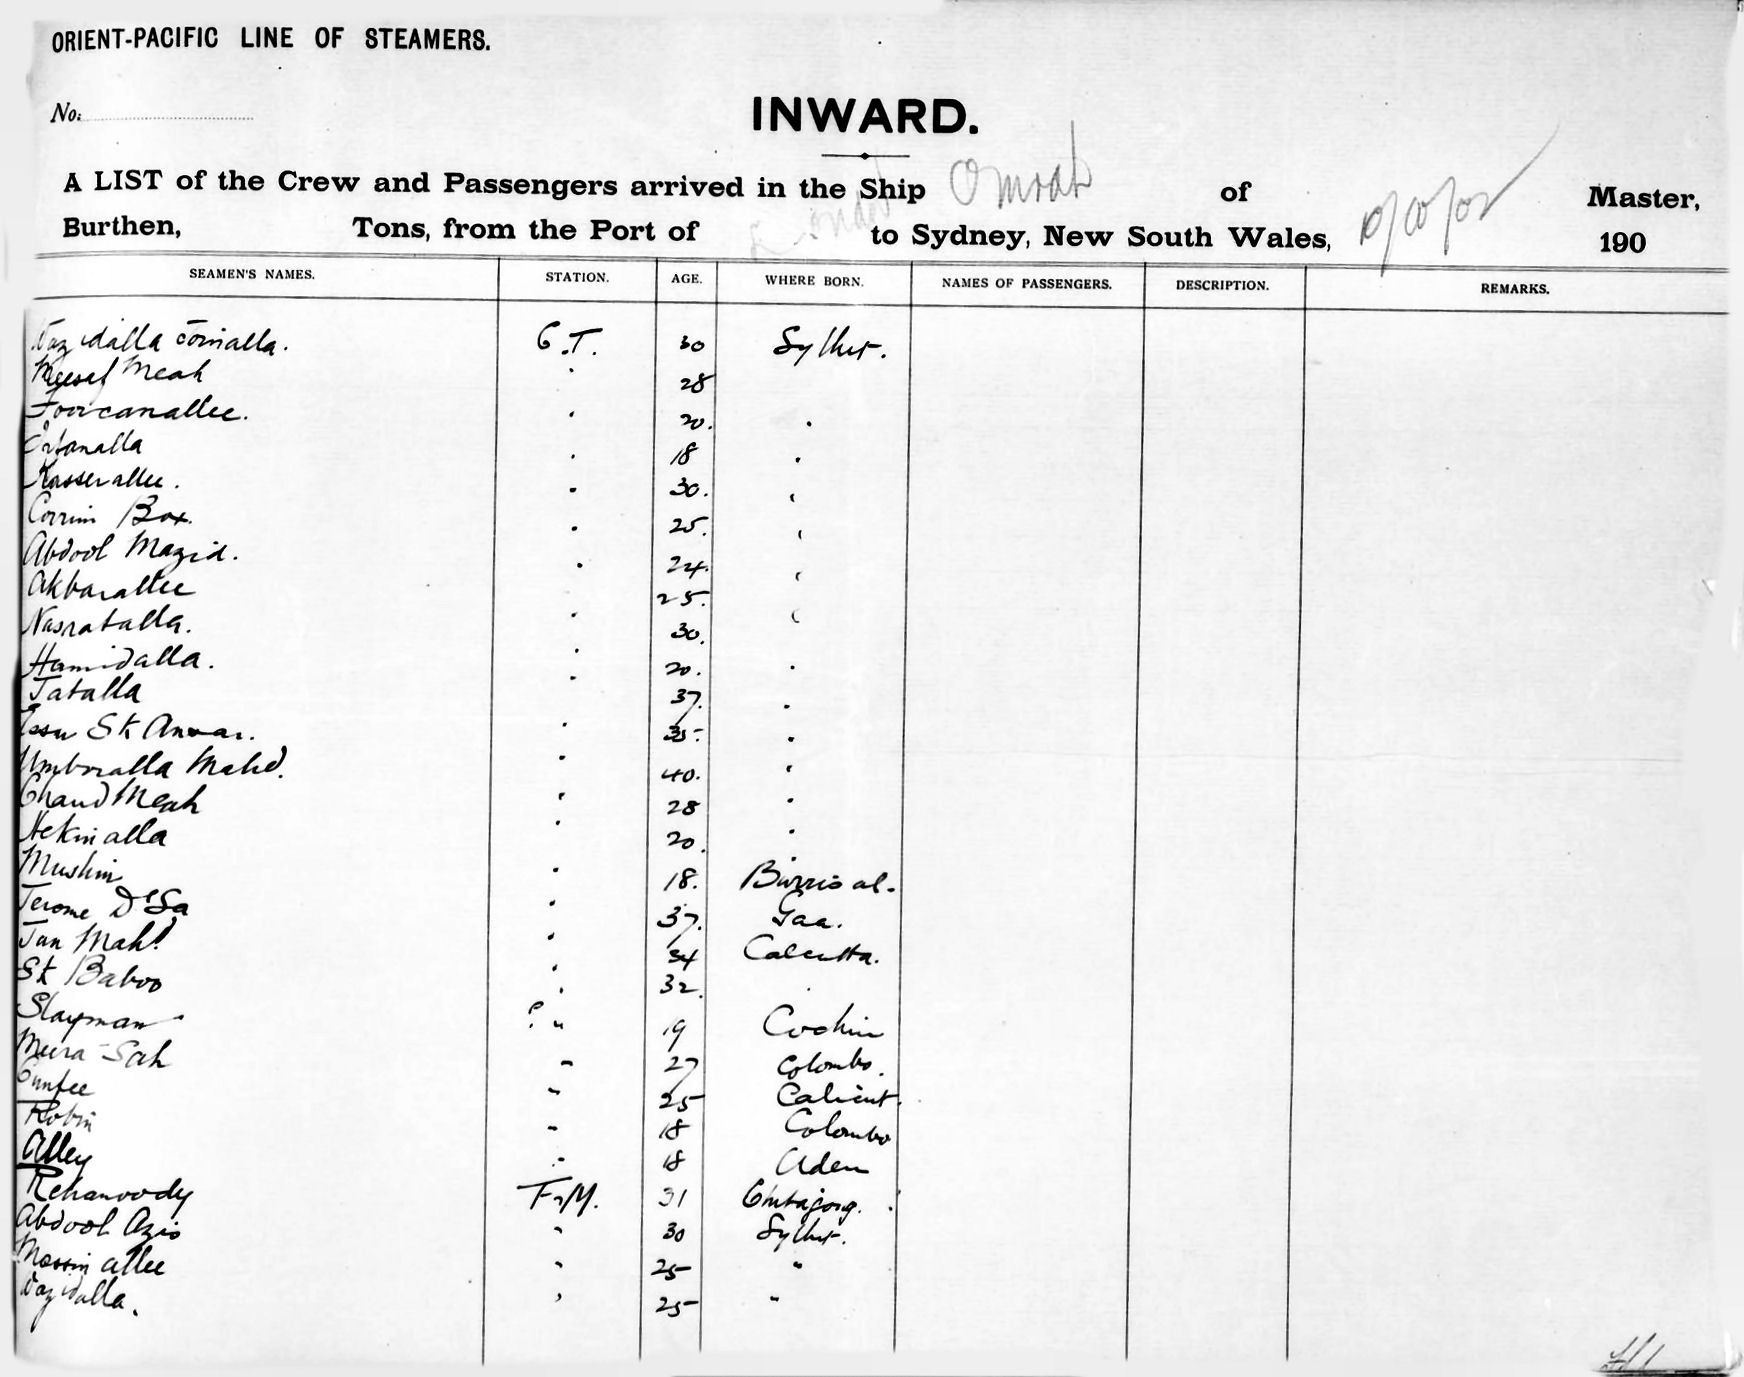 ORIENT-PACIFIC LINE OF STEAMERS.
No.
INWARD.
A LIST of the Crew and Passengers arrived in the Ship Omrah of Master,
Burthen, Tons, from the Port of London to Sydney, New South Wales, 190
SEAMEN'S NAMES. STATION. AGE. WHERE BORN. NAMES OF PASSENGERS. DESCRIPTION. REMARKS.
Wazidalla Tomalla. C.T. 30 Sylhet.
Meah 28
Foorcanallee. 20.
18
Kasserallee. 30.
Corrim Box. 25.
Abdool Mazid. 24.
Akbarallee 25.
Nasratalla. 30.
Hamidalla. 20.
Tatalla 37.
Essu Sk Anwar. 35.
Umboralla Mahd. 40.
Chand Meah 28
Hekimalla 20.
Muslim 18. Burrisal.
Jerome D'Sa 37. Goa.
Jan Mahd 34 Calcutta.
Sk Baboo 32.
Slayman " 19 Cochin
Meera Sah " 27 Colombo.
" 25 Calicut.
Robin " 18 Colombo
Alley " 18 Aden
Rehamoody 31 Chitagong.
Abdool Azis " 30 Sylhet.
Mossim allee " 25 "
Wazidalla. " 25 "